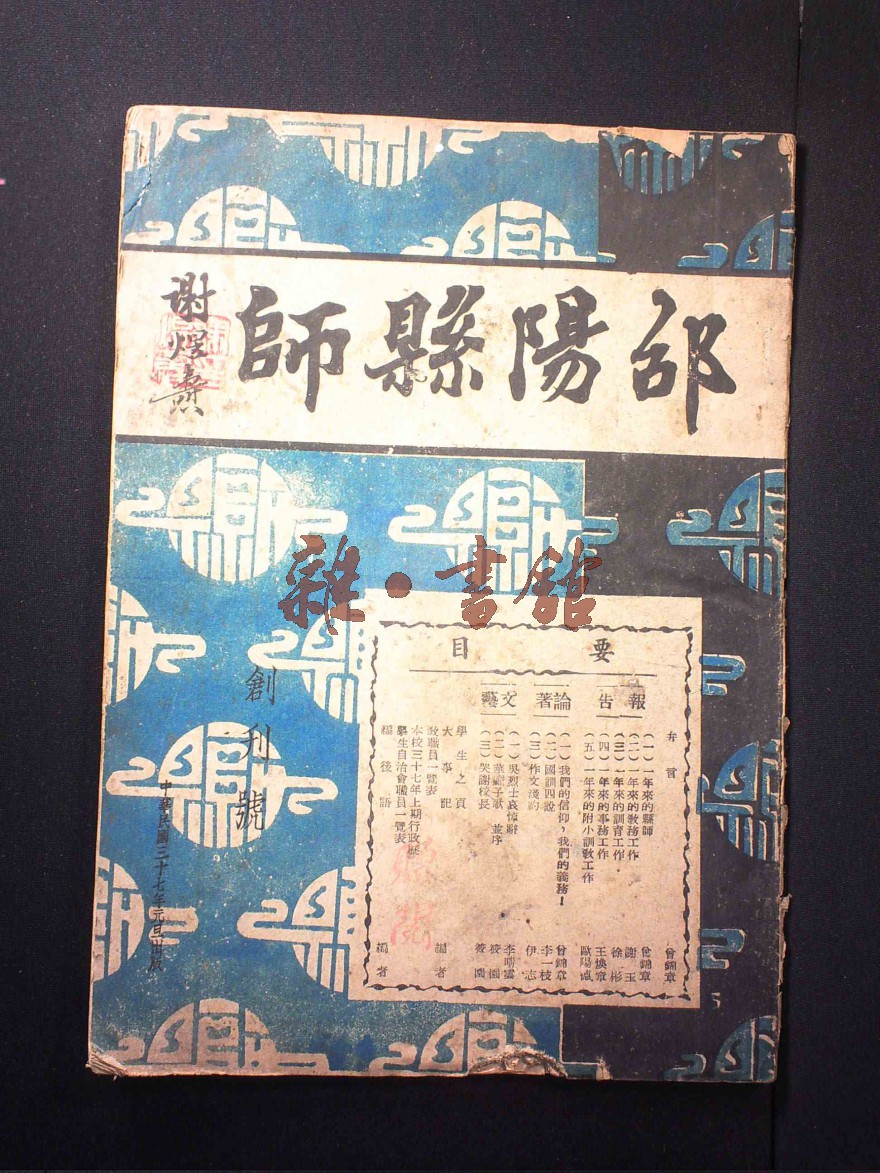 邵陽縣師
謝煜燾
雜·書館
創刊號
中華民國三十七年元旦出版
要目
弁言 曾錦章
報告
(一)一年來的縣師 曾錦章
(二)一年來的教務工作 謝玉
(三)一年來的訓育工作 徐彬
(四)一年來的事務工作 王煥章
(五)一年來的附小訓教工作 歐陽
論著
(一)我們的信仰,我們的義務! 曾錦章
(二)國訓四說 李一枝
(三)作文淺釣 伊志
文藝
(一)吳烈士哀悼辭 李晴雲
(二)華 並序 筱園
(三)哭謝校長 筱園
學生之頁
大事記 編者
教職員一覽表
本校三十七年上期行政歷
學生自治會職員一覽表
編後語 編者